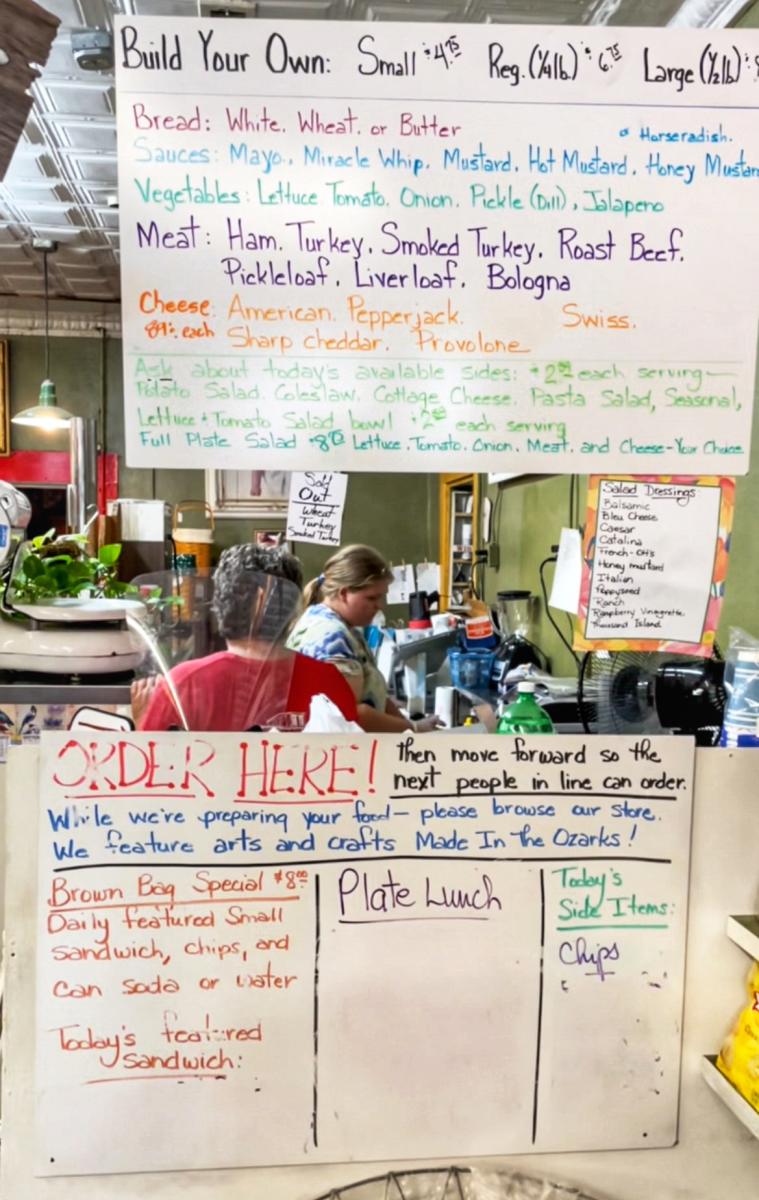 Build Your Own: Small $4.75 Reg. (1/4 lb.) $6.75 Large (1/2 lb)
Bread: White. Wheat. or Butter
Horseradish.
Sauces: Mayo., Miracle Whip. Mustard. Hot Mustard. Honey Mustar
Vegetables: Lettuce Tomato. Onion. Pickle (Dill), Jalapeno
Meat: Ham. Turkey. Smoked Turkey. Roast Beef.
Pickleloaf. Liverloaf. Bologna
Cheese: American. Pepperjack. Swiss.
89¢ each Sharp cheddar. Provolone
Ask about today's available sides: each serving—
Potato Salad. Coleslaw. Cottage Cheese. Pasta Salad, Seasonal,
Lettuce + Tomato Salad bowl each serving
Full Plate Salad Lettuce. Tomato. Onion. Meat. and Cheese-Your Choice
Sold
Out
Wheat
Turkey
Smoked Turkey
Salad Dressings:
Balsamic
Bleu Cheese
Caesar
Catalina
French-
Honey mustard
Italian
Poppyseed
Ranch
Raspberry Vinegrette
Thousand Island
ORDER HERE! then move forward so the
next people in line can order.
While we're preparing your food— please browse our store.
We feature arts and crafts Made In The Ozarks!
Brown Bag Special $8.00
Daily featured Small
sandwich, chips, and
can soda or water
Today's featured
sandwich:
Plate Lunch
Today's
Side Items:
Chips